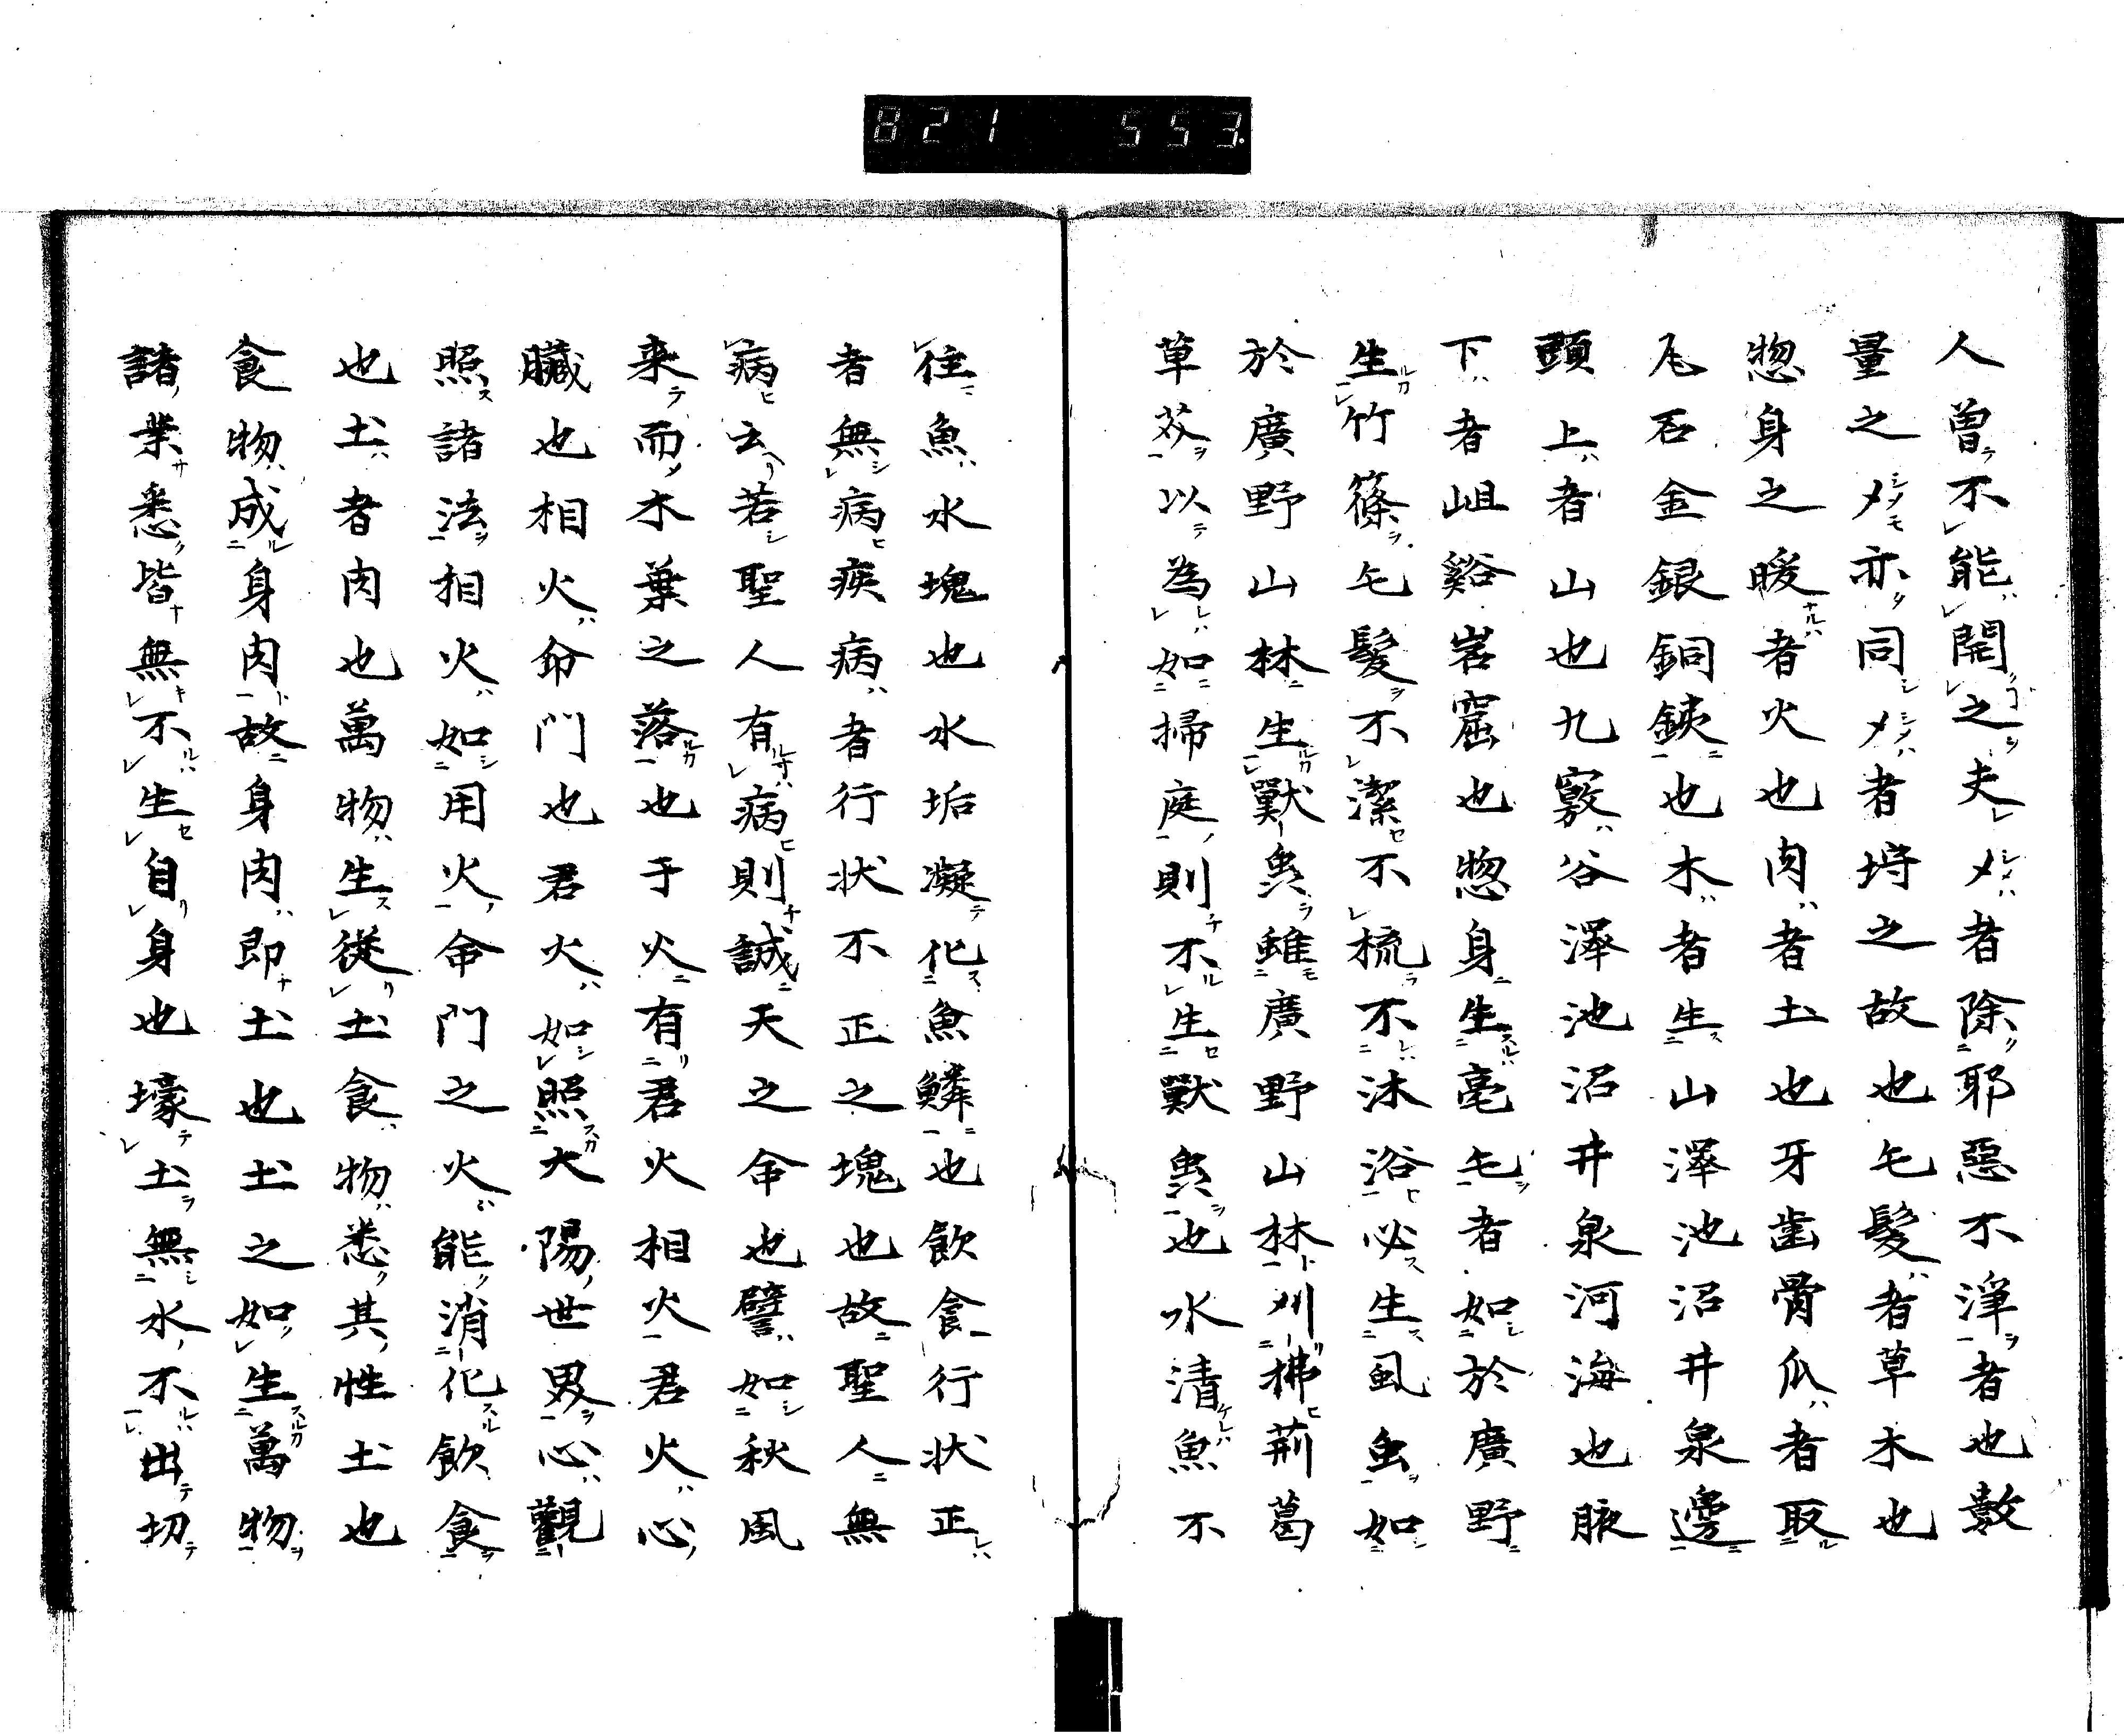 821 553.
人曽不能開之夫〆者除耶惡不淨者也數
量之〆亦同〆者埒之故也毛髪者草木也
惣身之暖者火也肉者土也牙歯骨爪者取
瓦石金銀銅鐵也木者生山澤池沼井泉邊
頭上者山也九竅谷澤池沼井泉河海也腋
下者岨谿岩窟也惣身生毫毛者如於廣野
生竹篠毛髮不潔不梳不沐浴必生虱虫如
於廣野山林生獸兽雖廣野山林刈拂荊葛
草芥以為如掃庭則不生獸也水清魚不
往魚水塊也水垢凝化魚鱗也飲食行状正
者無病疾病者行状不正之塊也故聖人無
病云若聖人有病則誠天之命也譬如秋風
来而木葉之落也于火有君火相火君火心
臓也相火命門也君火如照大陽世界心觀
照諸法相火如用火命門之火能消化飲食
也土者肉也萬物生從土食物悉其性土也
食物成身肉故身肉即土也土之如生萬物
諸業悉皆無不生自身也壕土無水不出切